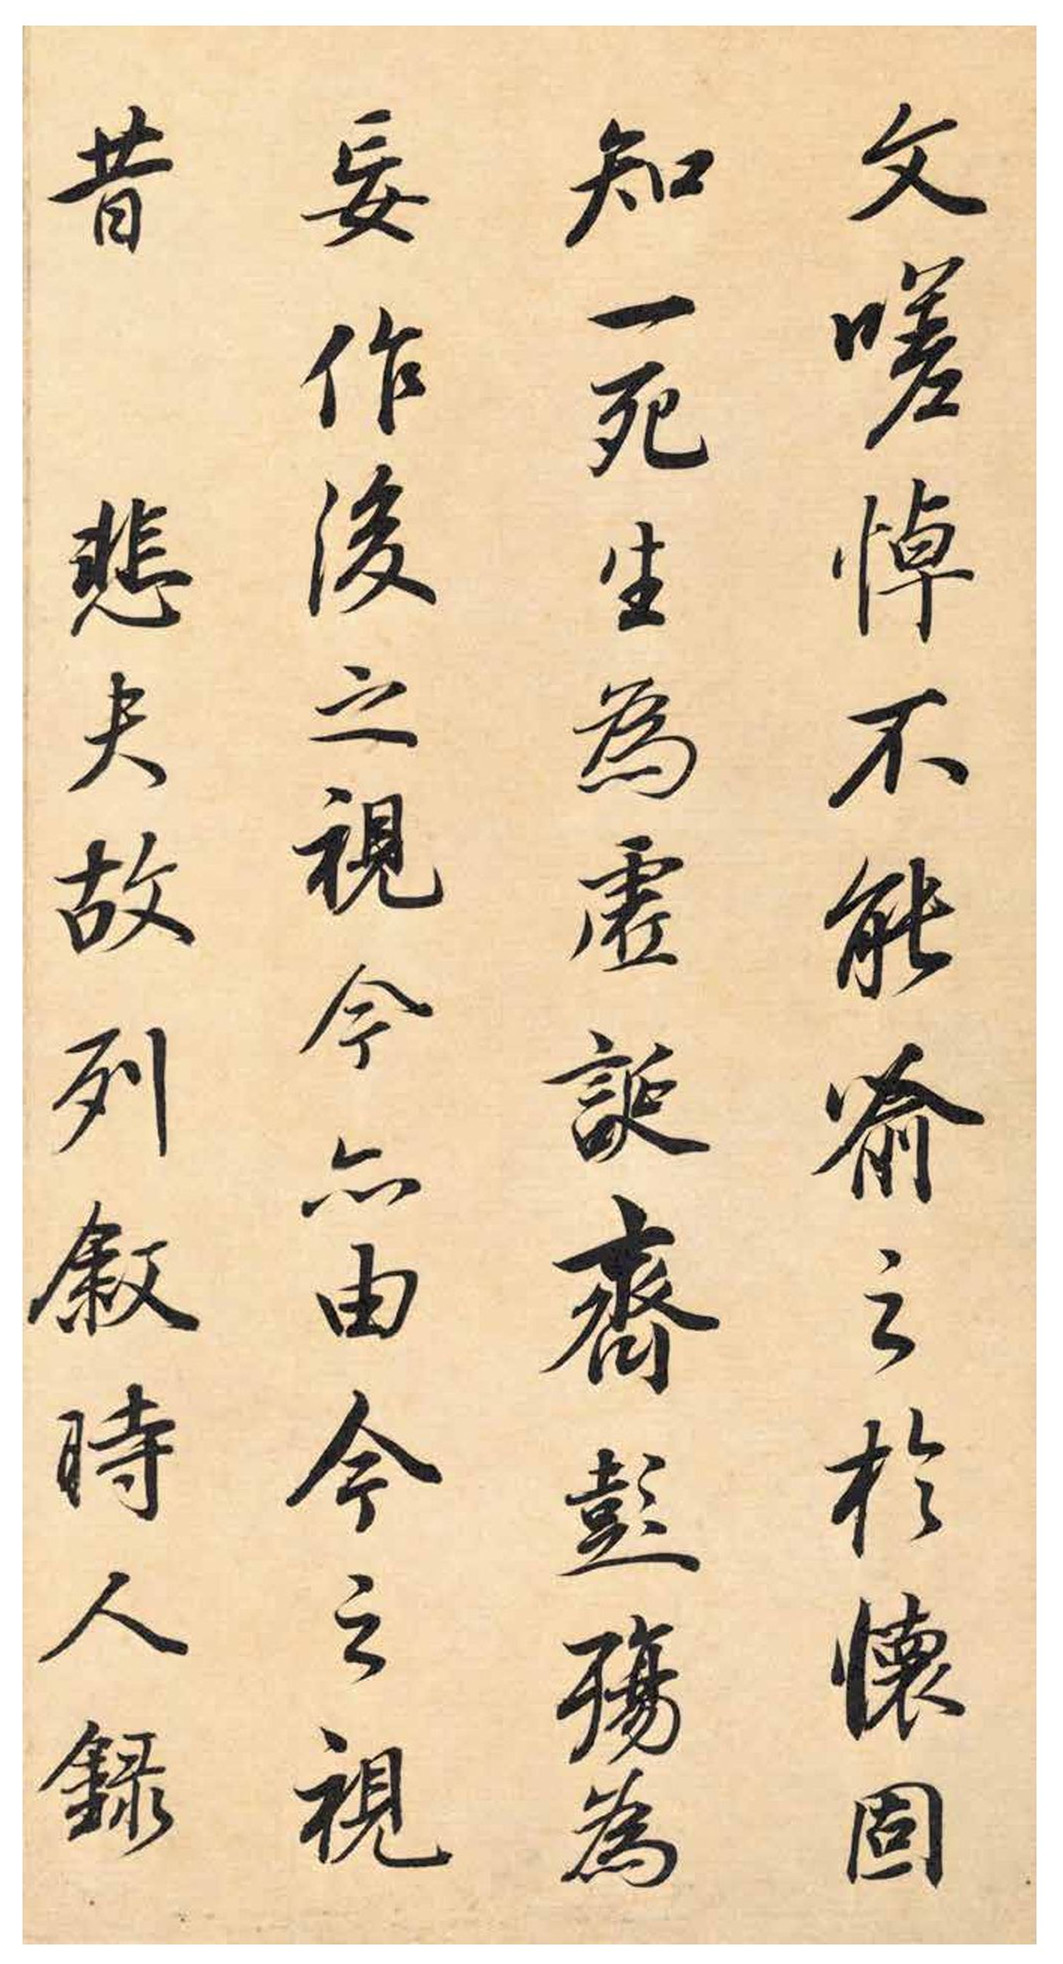 文嗟悼不能喻之於懷固
知一死生為虛誕齊彭殤為
妄作後之視今今亦由今之視
昔 悲夫故列敘時人錄